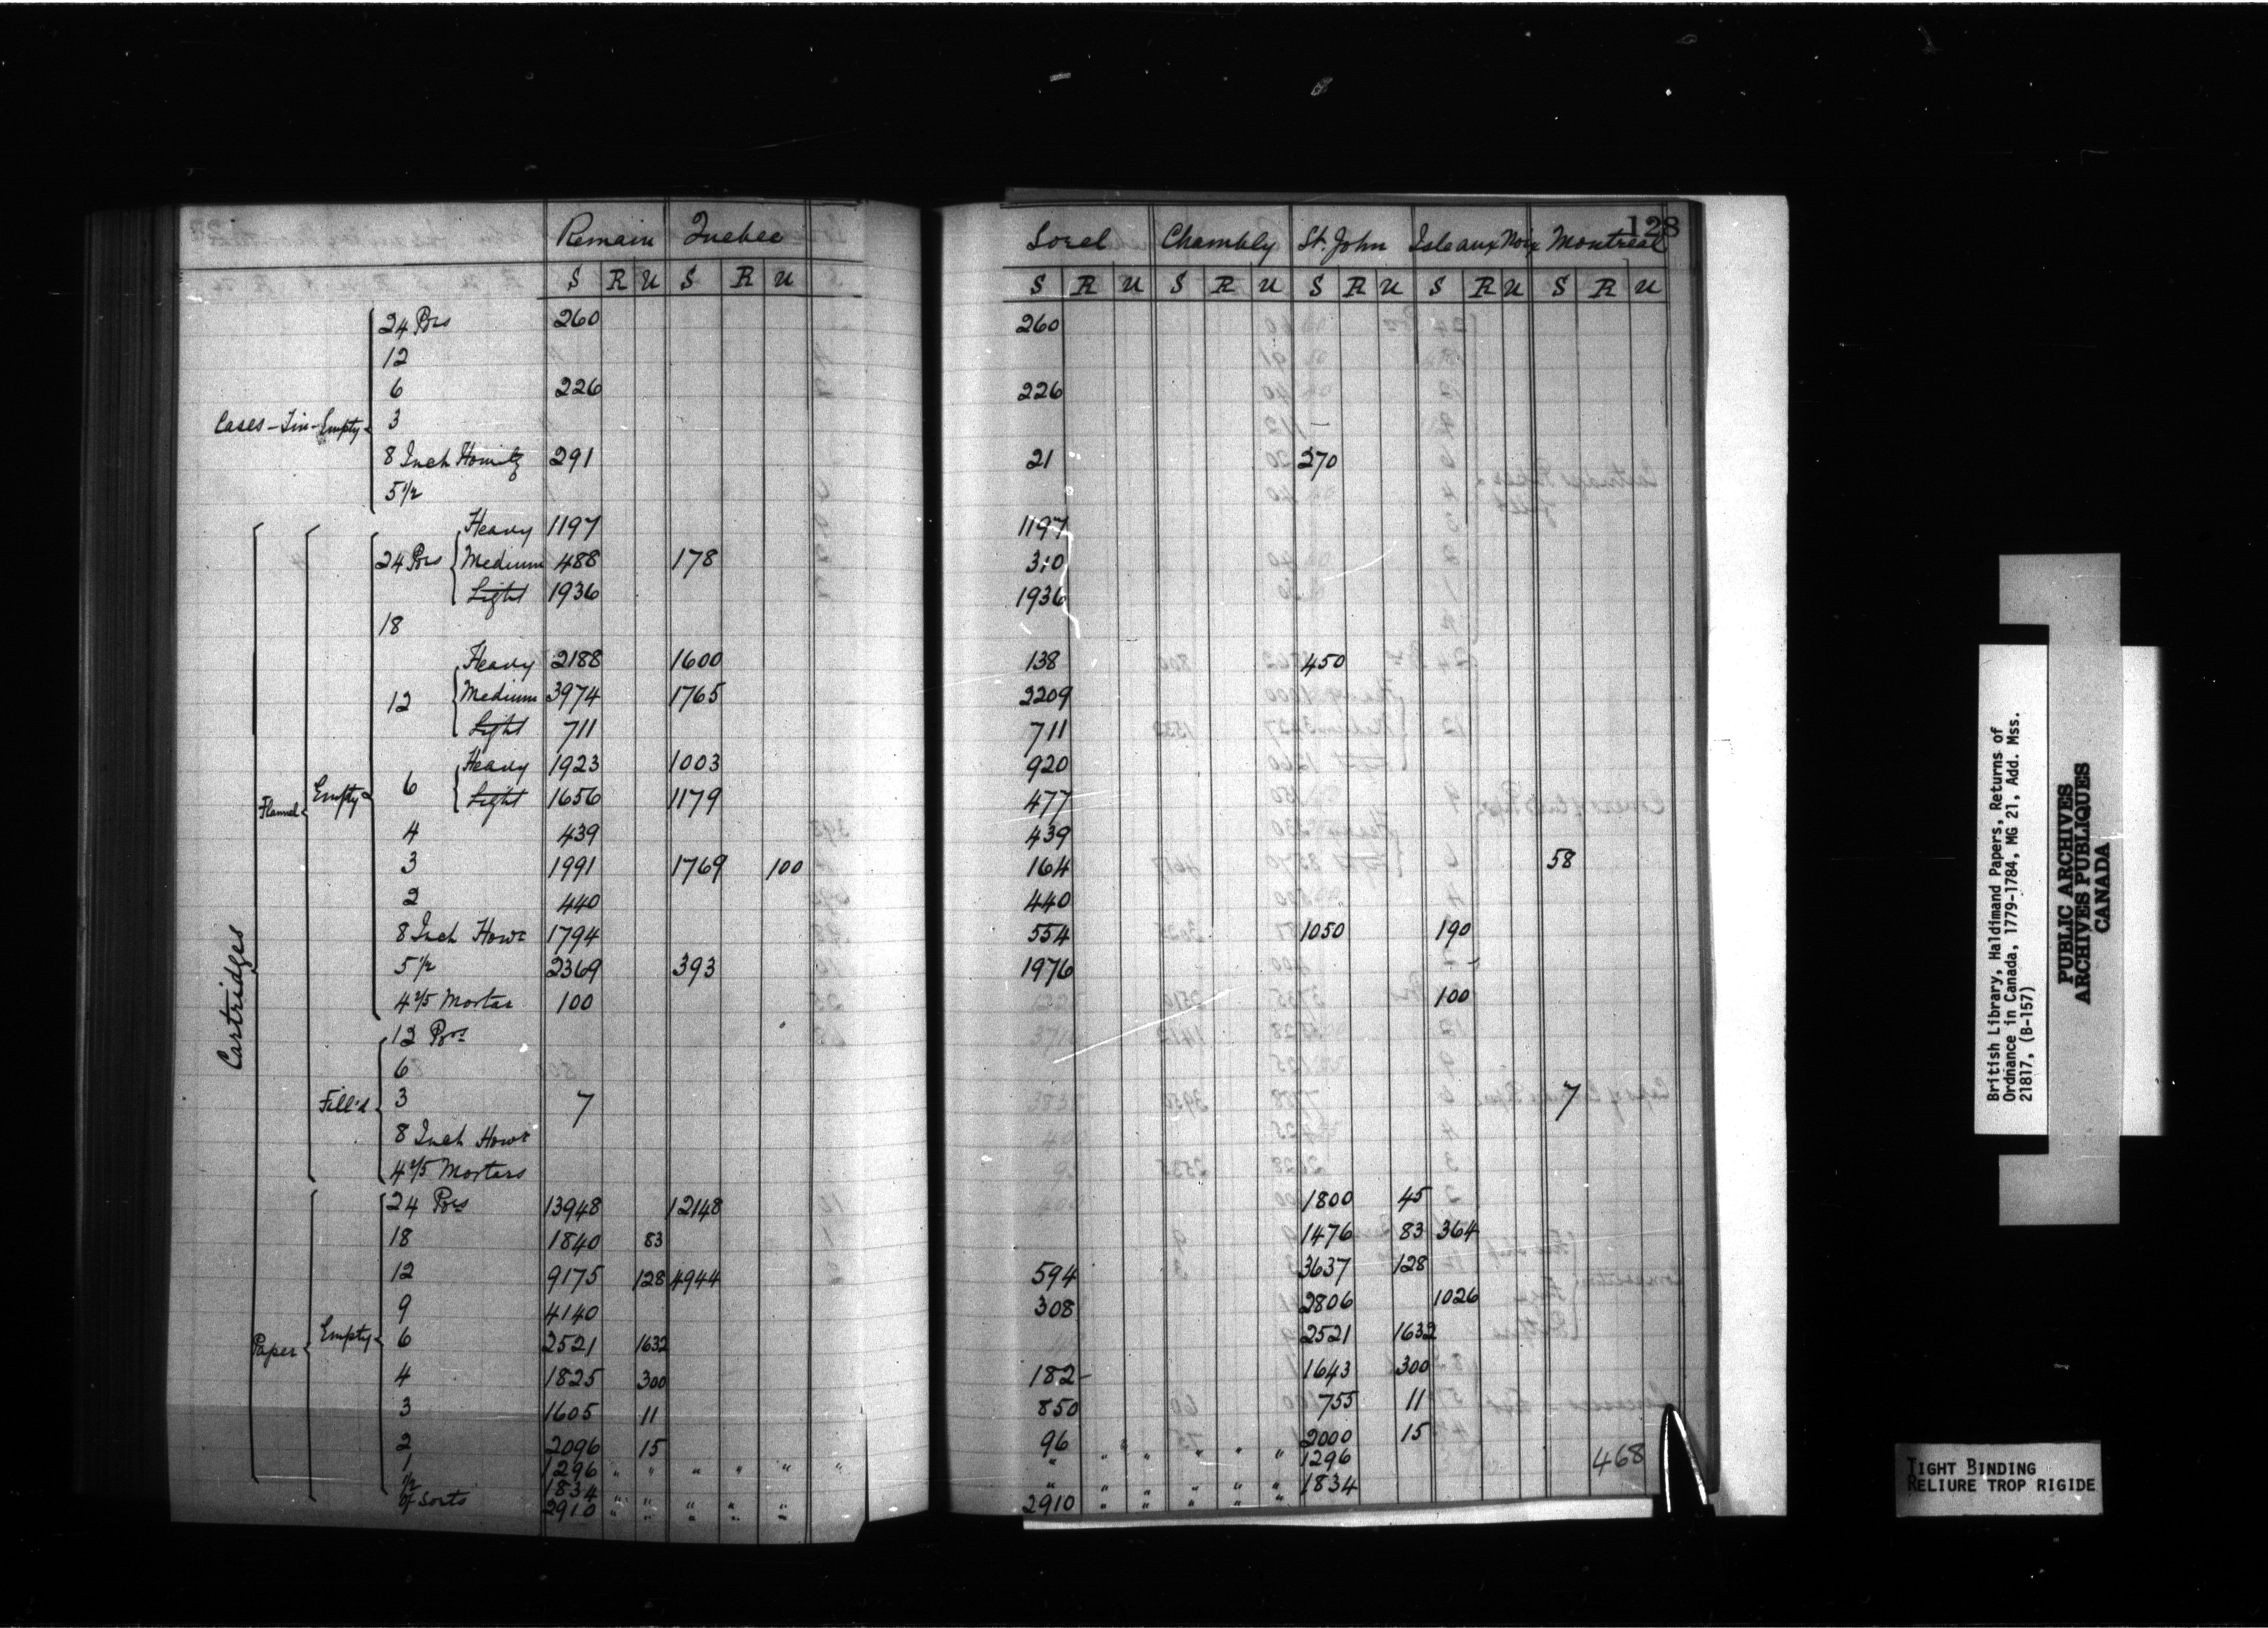 128
Remain Quebec Sorel Chambly St. John Isle aux Noix Montreal
S R U S R U S R U S R U S R U S R U S R U
24 Prs 260 260
12
6 226 226
Cases - Tin - Empty 3
8 Inch Howitz 291 21 270
5 1/2
Heavy 1197 1197
24 Prs Medium 488 178 310
Light 1936 1936
18
Heavy 2188 1600 138 450
12 Medium 3974 1765 2209
Light 711 711
Heavy 1923 1003 920
6 Light 1656 1179 477
Flannel Empty
4 439 439
3 1991 1769 100 164 58
2 440 440
8 Inch Howr 1794 554 1050 190
5 1/2 2369 393 1976
4 2/5 Mortar 100 100
Cartridges
12 Prs
6
Fill'd 3 7 7
8 Inch Howr
4 2/5 Mortars
24 Prs 13948 12148 1800 45
18 1840 83 1476 83 364
12 9175 128 4944 594 3637 128
9 4140 308 2806 1026
Paper Empty 6 2521 1632 2521 1632
4 1825 300 182 - 1643 300
3 1605 11 850 755 11
2 2096 15 96 2000 15
1 1296 " " " " " " " " " " " " 1296 468
1/2 1834 " " " " " " " " " " " 1834
of Sorts 2910 " " " " " 2910 " " " " "
British Library, Haldimand Papers, Returns of
Ordnance in Canada, 1779-1784, MG 21, Add. Mss.
21817, (B-157)
PUBLIC ARCHIVES
ARCHIVES PUBLIQUES
CANADA
TIGHT BINDING
RELIURE TROP RIGIDE